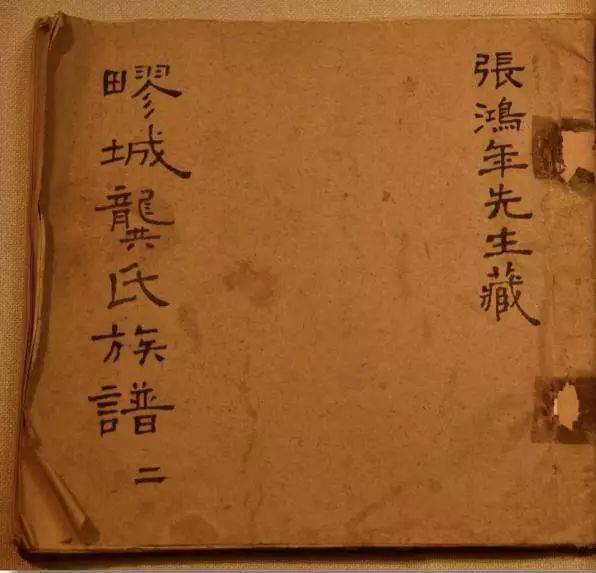 張鴻年先生藏
疁城龔氏族譜 二